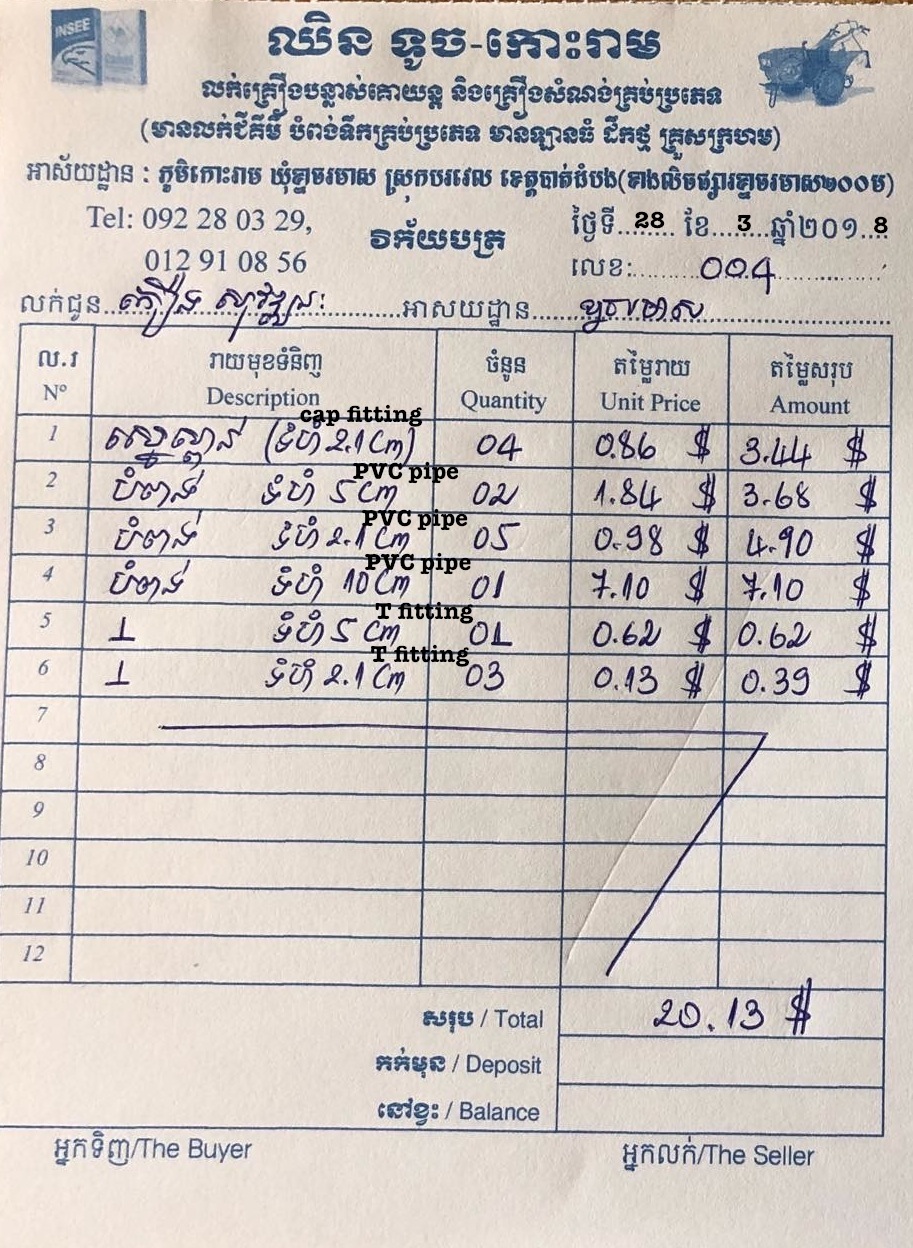 INSEE
ឈិន ទូច-កោះរាម
លក់គ្រឿងបន្លាស់គោយន្ត និងគ្រឿងសំណង់គ្រប់ប្រភេទ
(មានលក់ជីគីមី បំពង់ទឹកគ្រប់ប្រភេទ មានឡានធំ ដឹកថ្ម គ្រួសក្រហម)
អាស័យដ្ឋាន : ភូមិកោះរាម ឃុំខ្នាចរមាស ស្រុកបវេល ខេត្តបាត់ដំបង(ខាងលិចផ្សារខ្នាចរមាស២០០ម)
Tel: 092 28 03 29,
012 91 08 56
វិក័យបត្រ
ថ្ងៃទី.....28..... ខែ.....3.....ឆ្នាំ២០១.8
លេខ:.........004.........
លក់ជូន.....................អាសយដ្ឋាន.....................
ល.រ រាយមុខទំនិញ ចំនួន តម្លៃរាយ តម្លៃសរុប
Nº Description Quantity Unit Price Amount
cap fitting
1 (ទំហំ 2.1 Cm) 04 0.86 $ 3.44 $
PVC pipe
2 បំពង់ ទំហំ 5 Cm 02 1.84 $ 3.68 $
PVC pipe
3 បំពង់ ទំហំ 2.1 Cm 05 0.98 $ 4.90 $
PVC pipe
4 បំពង់ ទំហំ 10 Cm 01 7.10 $ 7.10 $
T fitting
5 ⊥ ទំហំ 5 Cm 01 0.62 $ 0.62 $
T fitting
6 ⊥ ទំហំ 2.1 Cm 03 0.13 $ 0.39 $
7
8
9
10
11
12
សរុប / Total 20.13 $
កក់មុន / Deposit
នៅខ្វះ / Balance
អ្នកទិញ/The Buyer អ្នកលក់/The Seller